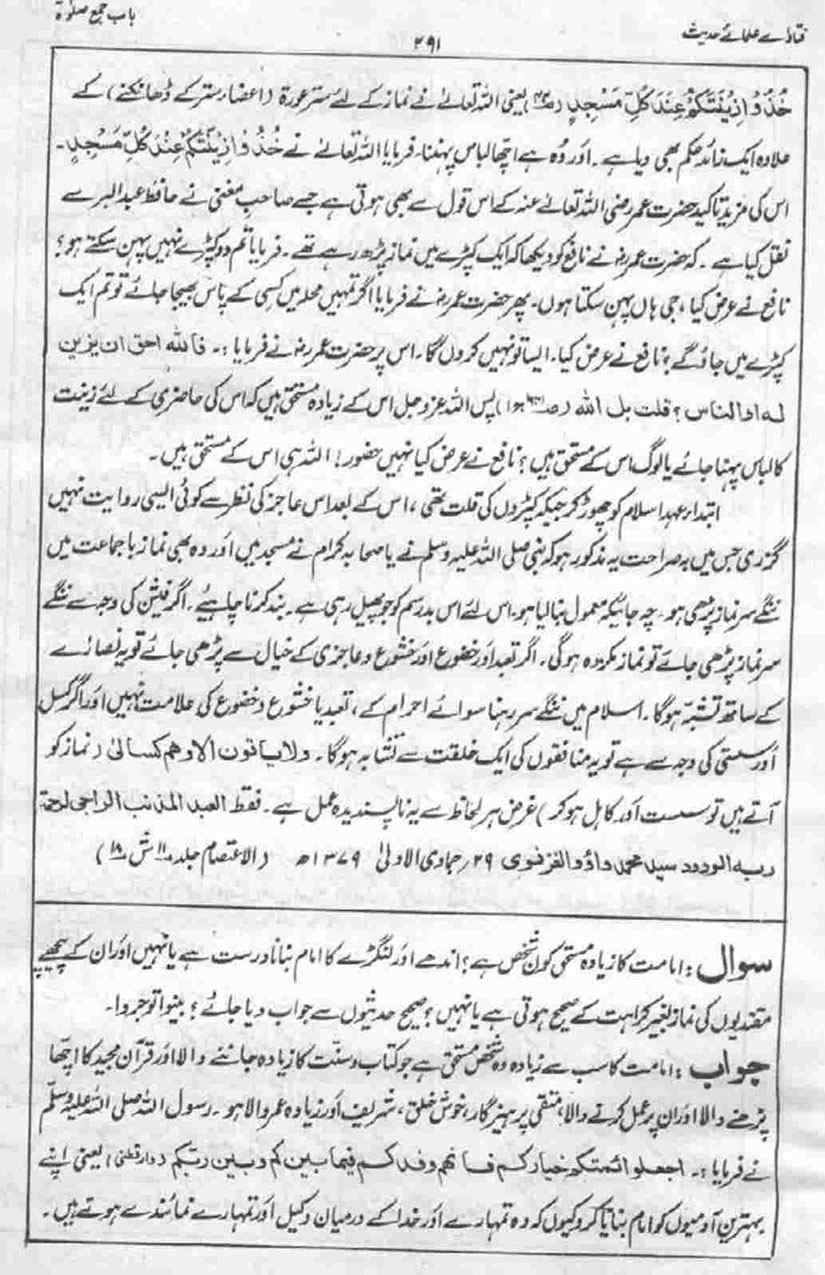 فتاوے علمائے حدیث
۲۹۱
باب جمع صلوٰۃ
خُذُوْا زِیْنَتَکُمْ عِنْدَ کُلِّ مَسْجِدٍ یعنی اللہ تعالےٰ نے نماز کے لئے ستر عورۃ (اعضاء ستر کے ڈھانکنے) کے
علاوہ ایک زائد حکم بھی دیا ہے۔ اور وُہ ہے اچھا لباس پہننا۔ فرمایا اللہ تعالےٰ نے خُذُوْا زِیْنَتَکُمْ عِنْدَ کُلِّ مَسْجِدٍ۔
اس کی مزید تاکید حضرت عمر رضی اللہ تعالےٰ عنہ کے اس قول سے بھی ہوتی ہے جسے صاحب مغنی نے حافظ عبد البر سے
نقل کیا ہے۔ کہ حضرت عمرؓ نے نافع کو دیکھا کہ ایک کپڑے میں نماز پڑھ رہے تھے۔ فرمایا تم دو کپڑے نہیں پہن سکتے ہو؟
نافع نے عرض کیا، جی ہاں پہن سکتا ہوں۔ پھر حضرت عمرؓ نے فرمایا اگر تمہیں محلہ میں کسی کے پاس بھیجا جائے تو تم ایک
کپڑے میں جاؤ گے؟ نافع نے عرض کیا۔ ایسا تو نہیں کروں گا۔ اس پر حضرت عمرؓ نے فرمایا :۔ فاللہ احق ان یزین
لہ ام الناس؟ قلت بل اللہ پس اللہ عزوجل اس کے زیادہ مستحق ہیں کہ اس کی حاضری کے لئے زینت
کا لباس پہنا جائے یا لوگ اس کے مستحق ہیں؟ نافع نے عرض کیا نہیں حضور! اللہ ہی اس کے مستحق ہیں۔
ابتداء عہد اسلام کو چھوڑ کر جبکہ کپڑوں کی قلت تھی، اس کے بعد اس عاجز کی نظر سے کوئی ایسی روایت نہیں
گزری جس میں بہ صراحت یہ مذکور ہو کہ نبی صلی اللہ علیہ وسلم نے یا صحابہ کرام نے مسجد میں اور وہ بھی نماز باجماعت میں
ننگے سر نماز پڑھی ہو۔ چہ جائیکہ معمول بنا لیا ہو۔ اس لئے اس بد رسم کو جو پھیل رہی ہے۔ بند کرنا چاہیئے۔ اگر فیشن کی وجہ سے ننگے
سر نماز پڑھی جائے تو نماز مکروہ ہوگی۔ اگر تعبد اور خضوع اور خشوع و عاجزی کے خیال سے پڑھی جائے تو یہ نصارٰے
کے ساتھ تشبّہ ہوگا۔ اسلام میں ننگے سر رہنا سوائے احرام کے، تعبد یا خشوع و خضوع کی علامت نہیں اور اگر کسل
اور سستی کی وجہ سے ہے تو یہ منافقوں کی ایک خلقت سے تشابہ ہوگا۔ ولا یاتون الا وھم کسالیٰ (نماز کو
آتے ہیں تو سست اور کاہل ہو کر) غرض ہر لحاظ سے یہ ناپسندیدہ عمل ہے۔ فقط العبد المذنب الراجی لرحمۃ
ربہ الودود سید محمد داؤد الغزنوی ۲۹/جمادی الاولیٰ ۱۳۷۹ھ (الاعتصام جلد ۱۱ ش ۱۸)
سوال: امامت کا زیادہ مستحق کون شخص ہے؟ اندھے اور لنگڑے کا امام بنانا درست ہے یا نہیں اور ان کے پیچھے
مقتدیوں کی نماز بغیر کراہت کے صحیح ہوتی ہے یا نہیں؟ صحیح حدیثوں سے جواب دیا جائے؟ بینوا توجروا۔
جواب: امامت کا سب سے زیادہ وہ شخص مستحق ہے جو کتاب و سنّت کا زیادہ جاننے والا اور قرآن مجید کا اچھا
پڑھنے والا اور ان پر عمل کرنے والا، متقی پرہیزگار، خوش خلق، شریف اور زیادہ عمر والا ہو۔ رسول اللہ صلی اللہ علیہ وسلّم
نے فرمایا :۔ اجعلوا ائمتکم خیارکم فانھم وفدکم فیما بین کم وبین ربکم (دارقطنی) یعنی اپنے
بہترین آدمیوں کو امام بنایا کرو کیوں کہ وہ تمہارے اور خدا کے درمیان وکیل اور تمہارے نمائندے ہوتے ہیں۔